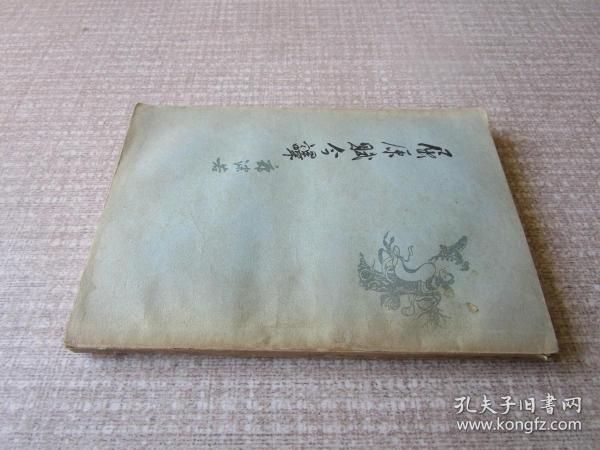 屈原赋今譯
郭沫若
孔夫子旧書网
www.kongfz.com